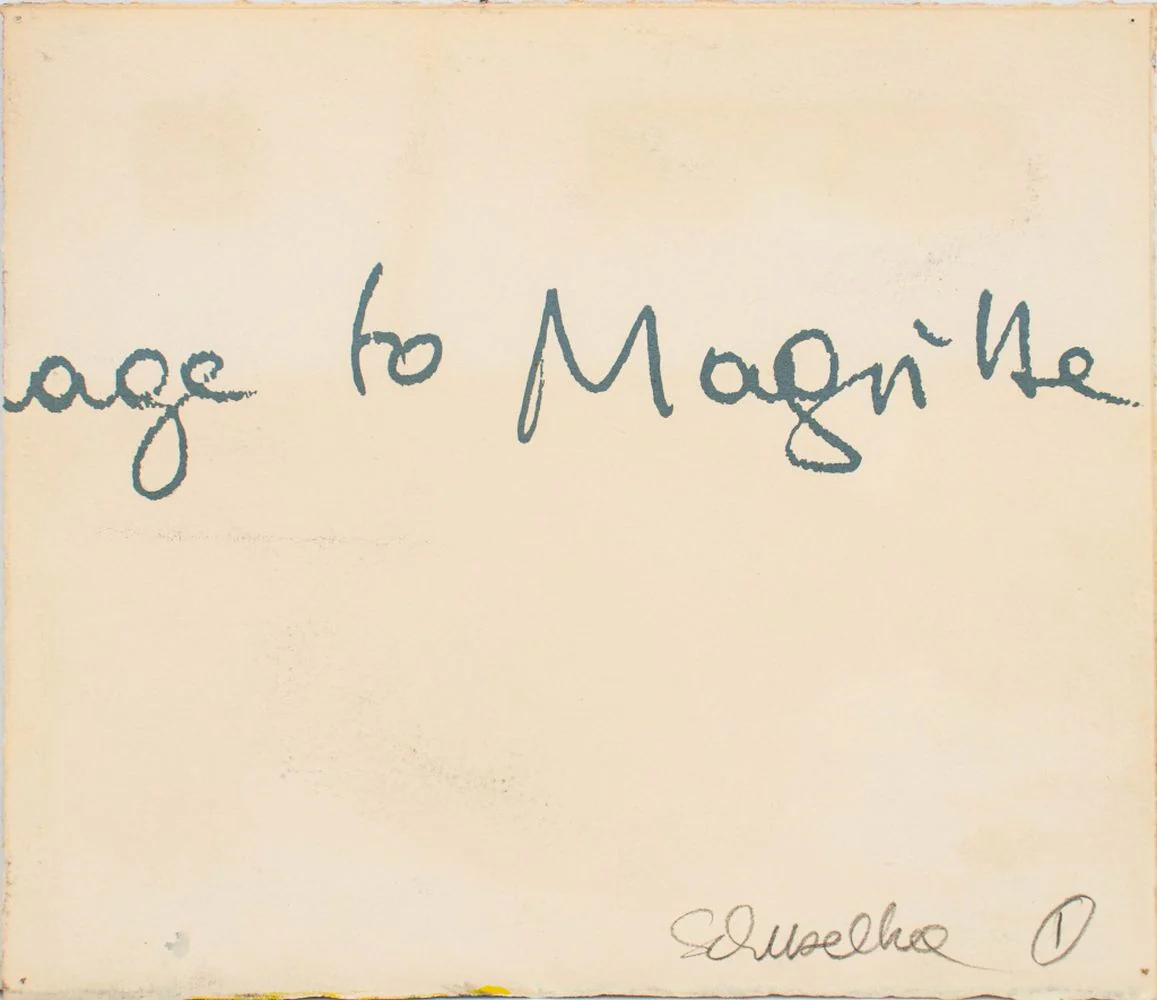 age to Magritte
Schuselka ①